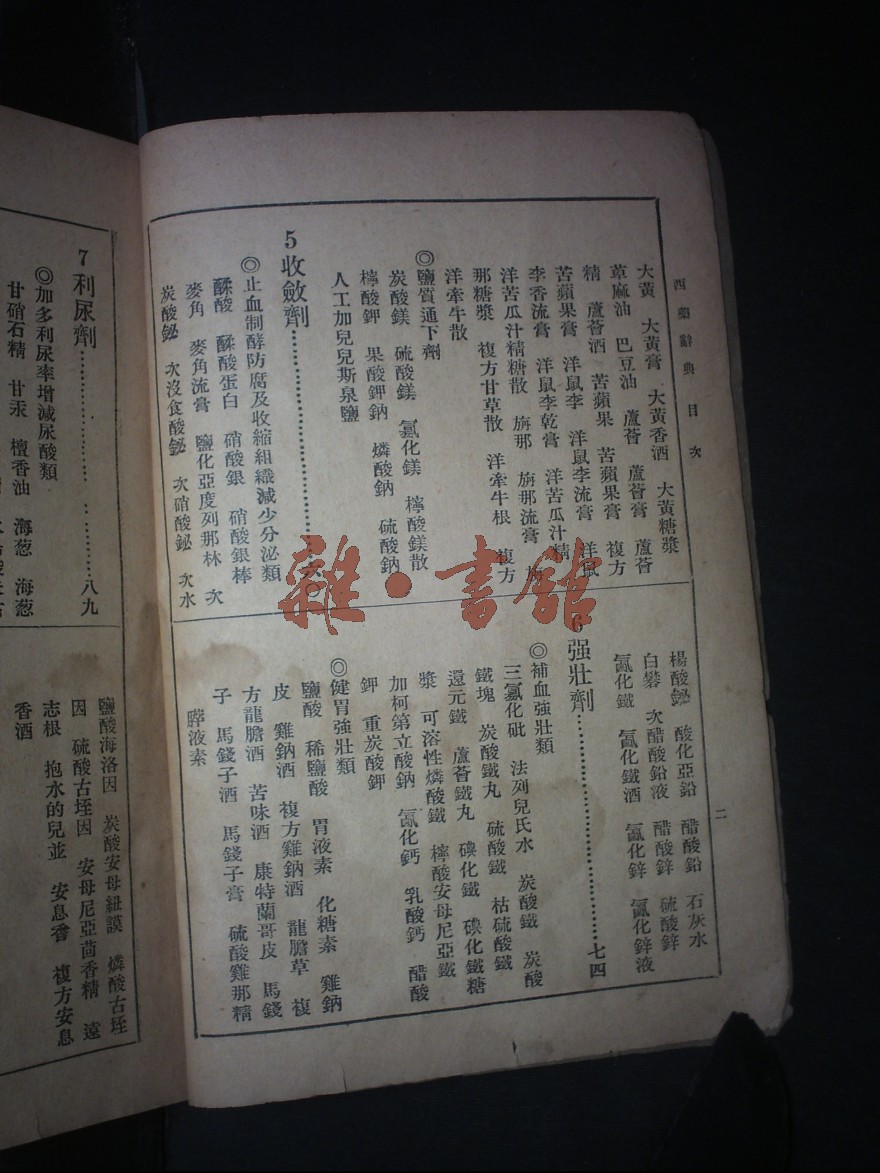 西藥辭典 目次
二
大黃 大黃膏 大黃香酒 大黃糖漿
草麻油 巴豆油 蘆薈 蘆薈膏 蘆薈
精 蘆薈酒 苦蘋果 苦蘋果膏 複方
苦蘋果膏 洋鼠李 洋鼠李流膏 洋鼠
李香流膏 洋鼠李乾膏 洋苦瓜汁精
洋苦瓜汁精糖散 旃那 旃那流膏 旃
那糖漿 複方甘草散 洋牽牛根 複方
洋牽牛散
◎鹽質通下劑
炭酸鎂 硫酸鎂 氯化鎂 檸酸鎂散
檸酸鉀 果酸鉀鈉 燐酸鈉 硫酸鈉
人工加兒兒斯泉鹽
5 收斂劑……………………六〇
◎止血制酵防腐及收縮組織減少分泌類
鞣酸 鞣酸蛋白 硝酸銀 硝酸銀棒
麥角 麥角流膏 鹽化亞度列那林 次
炭酸鉍 次沒食酸鉍 次硝酸鉍 次水
楊酸鉍 酸化亞鉛 醋酸鉛 石灰水
白礬 次醋酸鉛液 醋酸鋅 硫酸鋅
氯化鐵 氯化鐵酒 氯化鋅 氯化鋅液
6 强壯劑……………………七四
◎補血強壯類
三氯化砒 法列兒氏水 炭酸鐵 炭酸
鐵塊 炭酸鐵丸 硫酸鐵 枯硫酸鐵
還元鐵 蘆薈鐵丸 碘化鐵 碘化鐵糖
漿 可溶性燐酸鐵 檸酸安母尼亞鐵
加柯第立酸鈉 氯化鈣 乳酸鈣 醋酸
鉀 重炭酸鉀
◎健胃強壯類
鹽酸 稀鹽酸 胃液素 化糖素 雞鈉
皮 雞鈉酒 複方雞鈉酒 龍膽草 複
方龍膽酒 苦味酒 康特蘭哥皮 馬錢
子 馬錢子酒 馬錢子膏 硫酸雞那精
膵液素
7 利尿劑……………………八九
◎加多利尿率增減尿酸類
甘硝石精 甘汞 檀香油 海葱 海葱
鹽酸海洛因 炭酸安母紐謨 燐酸古垤
因 硫酸古垤因 安母尼亞茴香精 遠
志根 抱水的兒並 安息香 複方安息
香酒
雜·書館